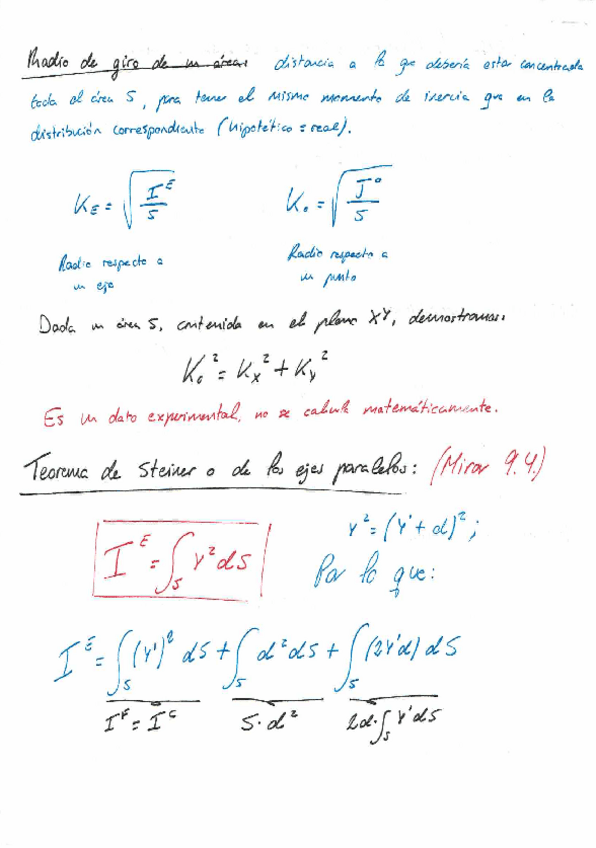 Radio de giro de un área: distancia a la que debería estar concentrada
toda el área S, para tener el mismo momento de inercia que en la
distribución correspondiente (hipotético = real).
K_E = √(I^E / S) K_o = √(J^o / S)
Radio respecto a Radio respecto a
un eje un punto
Dada un área S, contenida en el plano XY, demostramos:
K_o² = K_x² + K_y²
Es un dato experimental, no se calcula matemáticamente.
Teorema de Steiner o de los ejes paralelos: (Mirar 9.4.)
Y² = (Y' + d)² ;
I^E = ∫_S Y² dS Por lo que:
I^E = ∫_S (Y')² dS + ∫_S d² dS + ∫_S (2Y'd) dS
I^E' = I^G S·d² 2d·∫_S Y' dS